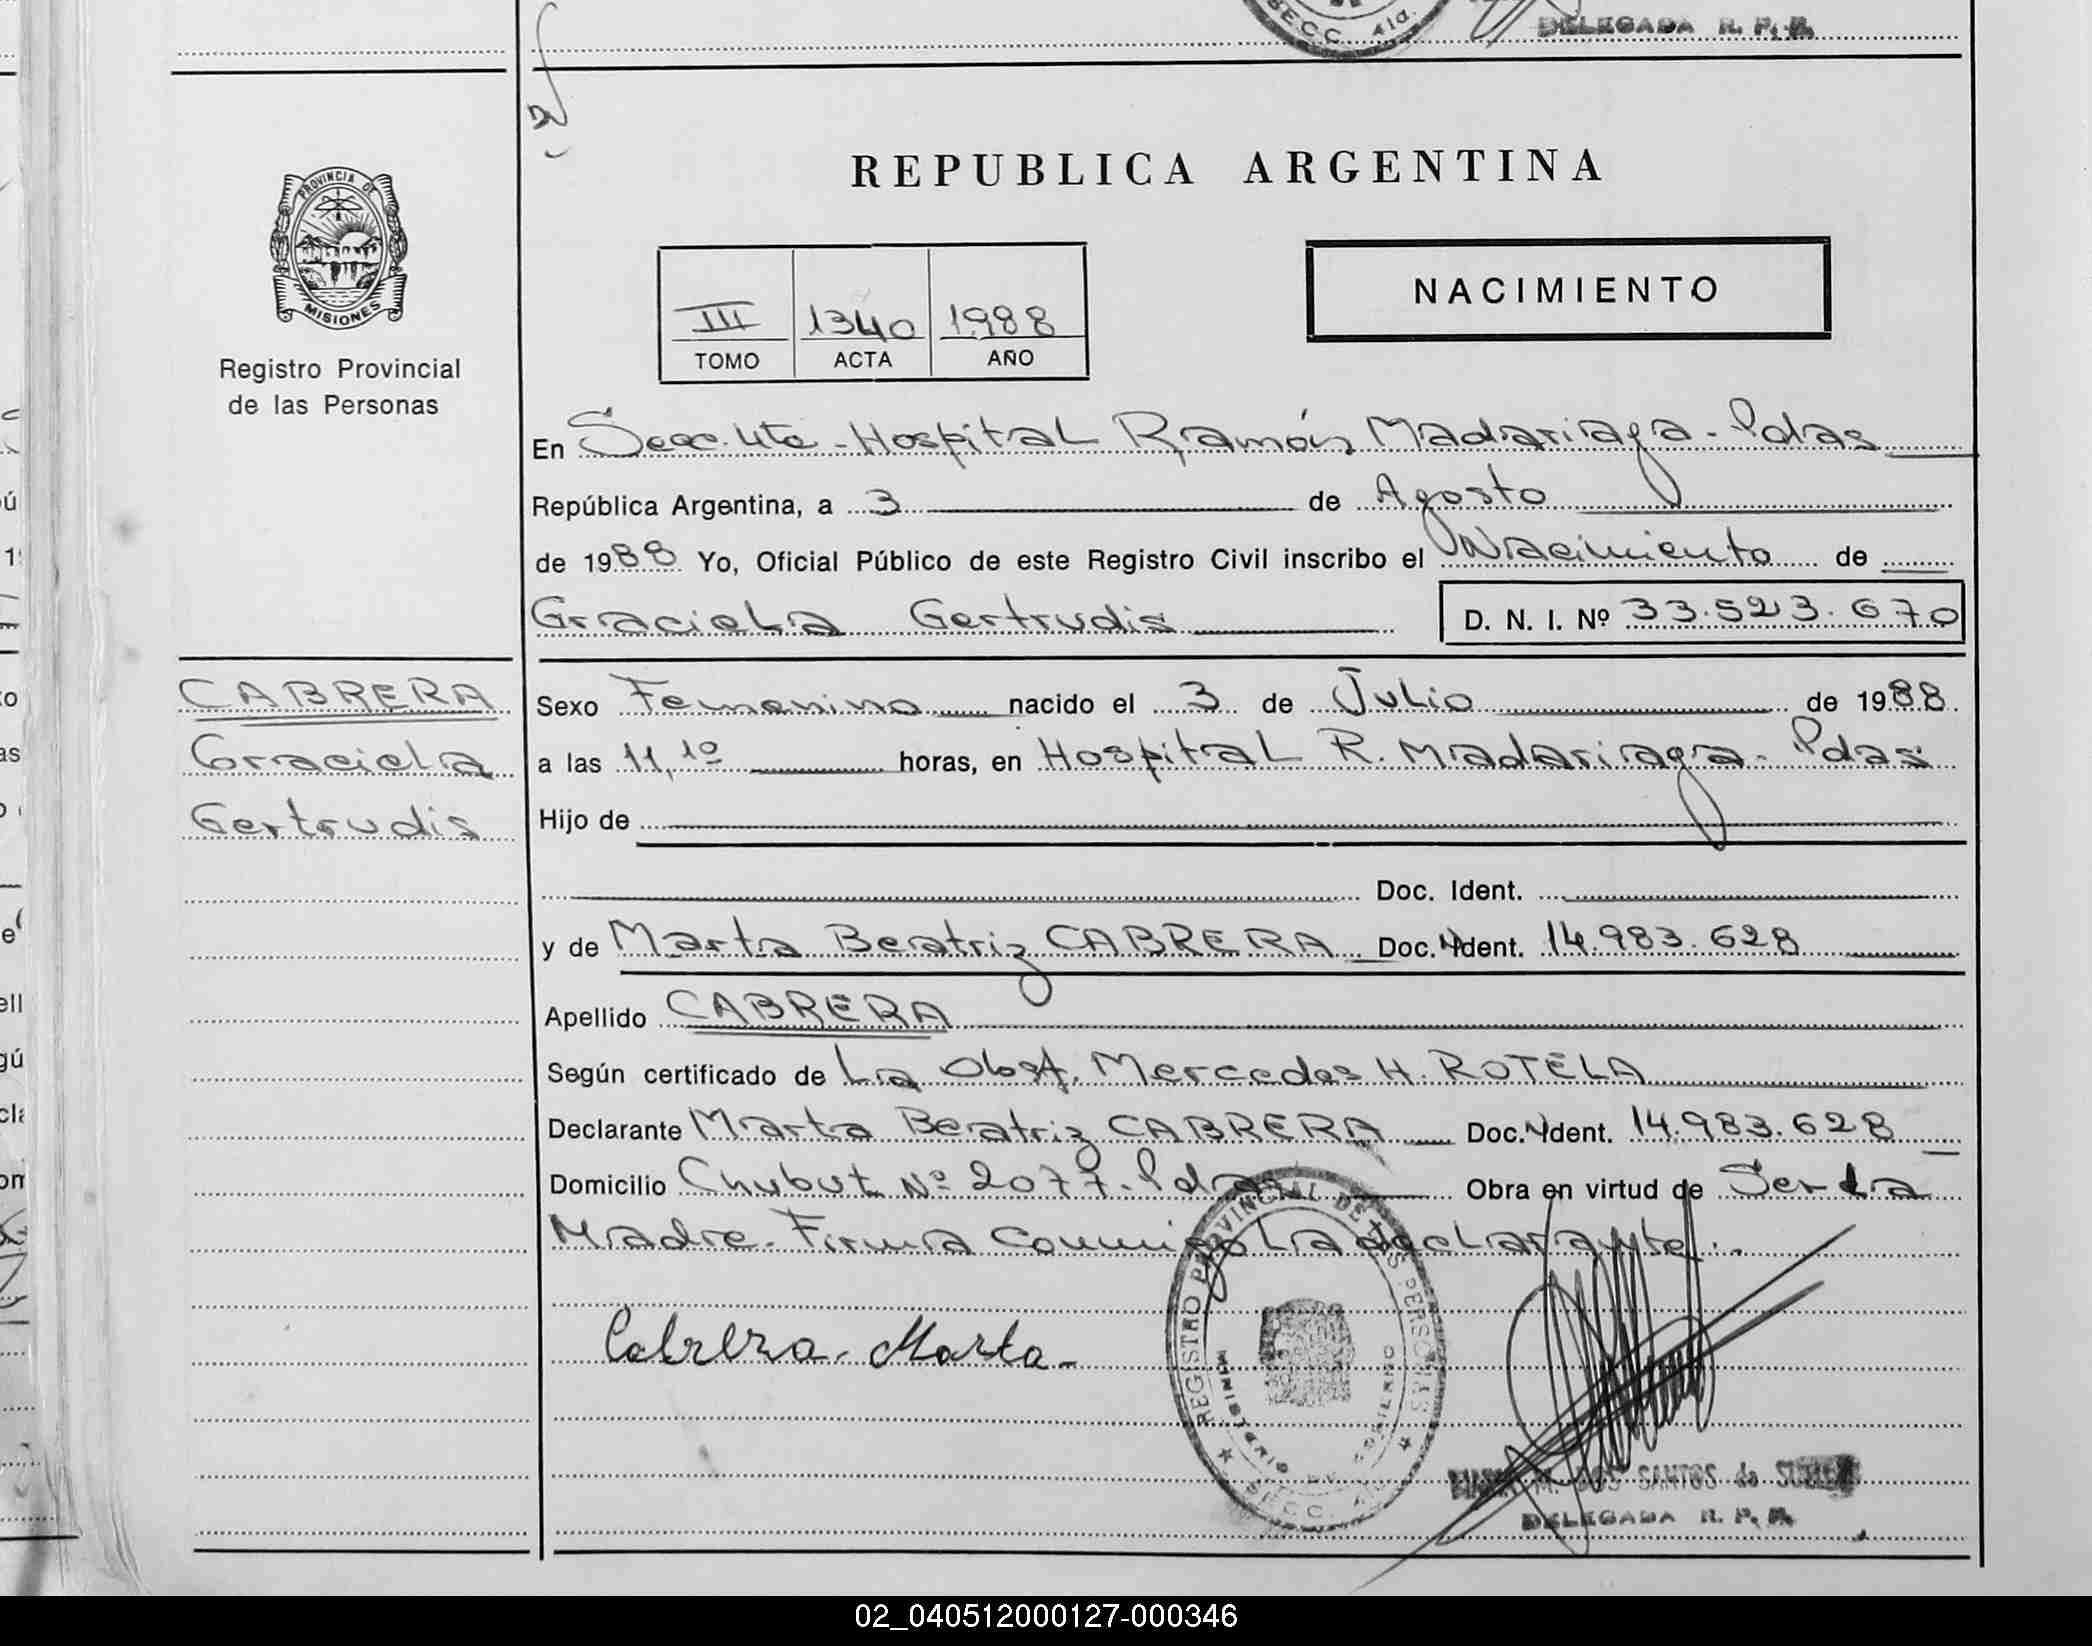 SECC. 4ta.
DELEGADA R. P. P.
PROVINCIA DE
MISIONES
Registro Provincial
de las Personas
REPUBLICA ARGENTINA
III 1340 1988
TOMO ACTA AÑO
NACIMIENTO
En Secc. 4ta - Hospital Ramón Madariaga - Pdas
República Argentina, a 3 de Agosto
de 1988 Yo, Oficial Público de este Registro Civil inscribo el Nacimiento de
Graciela Gertrudis D. N. I. Nº 33.523.670
CABRERA
Graciela
Gertrudis
Sexo Femenino nacido el 3 de Julio de 1988
a las 11,10 horas, en Hospital R. Madariaga - Pdas
Hijo de
Doc. Ident.
y de Marta Beatriz CABRERA Doc. Ident. 14.983.628
Apellido CABRERA
Según certificado de La Obst. Mercedes H. ROTELA
Declarante Marta Beatriz CABRERA Doc. Ident. 14.983.628
Domicilio Chubut Nº 2077 - Pdas Obra en virtud de Ser la
Madre - Firma conmigo La declarante.
Cabrera - Marta -
REGISTRO PROVINCIAL DE LAS PERSONAS
MINISTERIO DE GOBIERNO
SECC. 4ta
M. DOS SANTOS de
DELEGADA R. P. P.
02_040512000127-000346